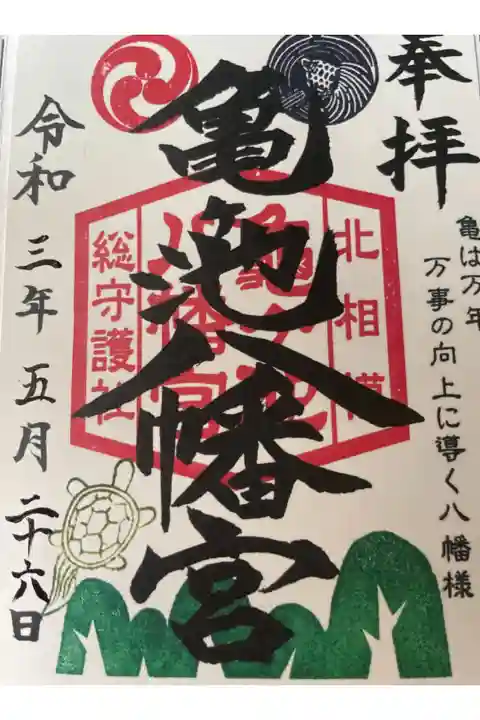 奉拝
亀は万年
万事の向上に導く八幡様
亀池八幡宮
北相模
総守護社
令和三年五月二十六日